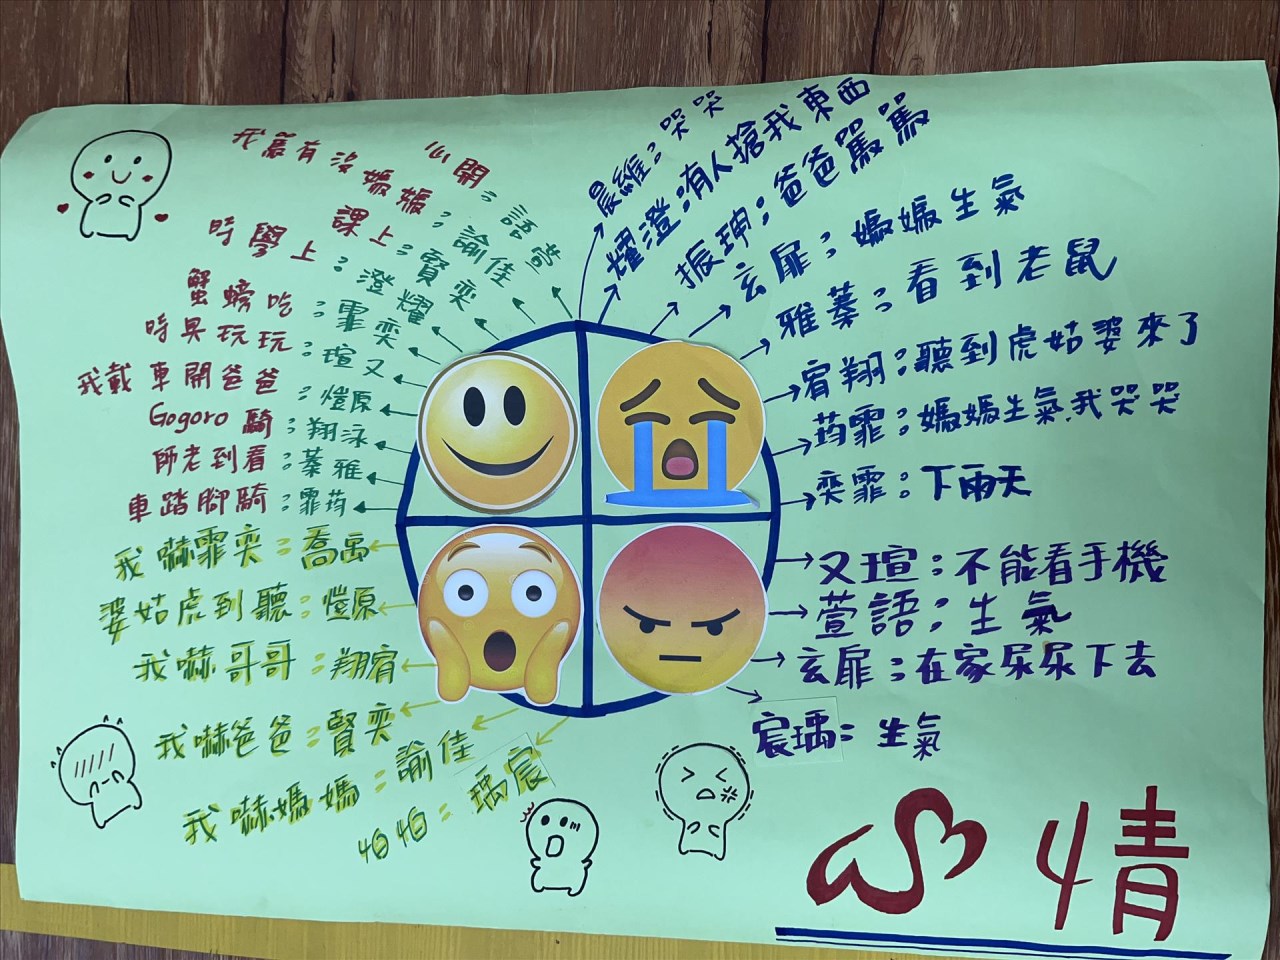 萱語：開心
佳諭：媽媽沒有罵我
奕賢：上課
耀澄：上學時
奕霏：吃螃蟹
又瑄：玩玩具時
原愷：爸爸開車載我
泳翔：騎Gogoro
雅蓁：看到老師
筠霏：騎腳踏車
晨維：哭哭
耀澄：有人搶我東西
振珅：爸爸罵罵
玄扉：媽媽生氣
雅蓁：看到老鼠
宥翔：聽到虎姑婆來了
筠霏：媽媽生氣,我哭哭
奕霏：下雨天
禹喬：奕霏嚇我
原愷：聽到虎姑婆
宥翔：哥哥嚇我
奕賢：爸爸嚇我
佳諭：媽媽嚇我
宸瑀：怕怕
又瑄：不能看手機
萱語：生氣
玄扉：在家尿尿下去
宸瑀：生氣
心情